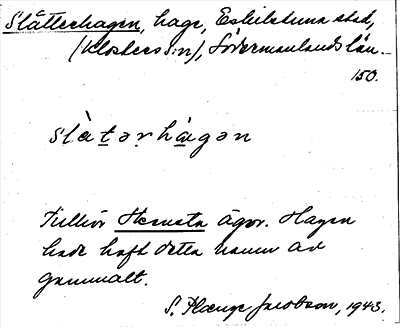 Slåtterhagen, hage, Eskilstuna stad,
(Klosters s:n), Södermanlands län.
150.
slàtərhàgən
Tillhör Stensta ägor. Hagen
hade haft detta namn av
gammalt.
S. Plænge Jacobson, 1943.